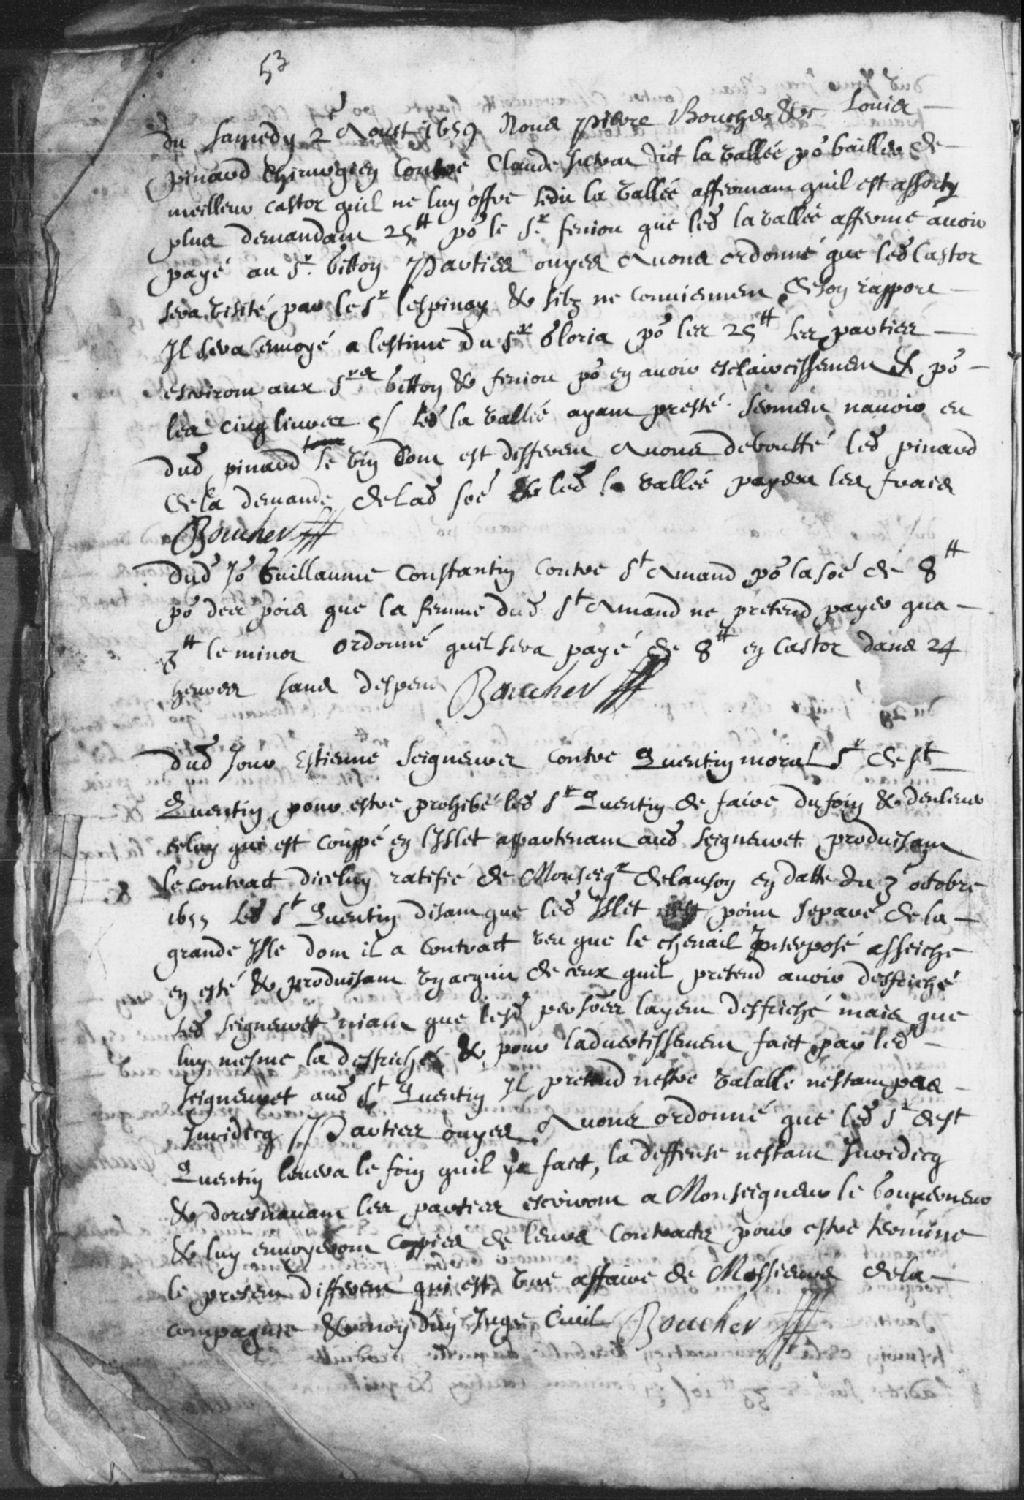 53
du samedy 2 Aoust 1659 Nous pierre Boucher &c Louis
pinard Chirurgien Contre Claude dict la Vallée po bailler de
meilleur castor quil ne luy offre ledit la Vallée affirmant quil est assorty
plus demandant 25tt po le Sr fenion que led la Vallée afferme avoir
payé au Sr Vitton Parties ouyes Avons ordonné que led Castor
sera visité par le Sr lespinay & silz ne conviennent de son rapport
Il sera envoyé a lestime du Sr Gloria po les 25tt les parties
escriront aux Srs Vitton & fenion po en avoir esclaircissement & po
les cinq livres led la Vallée ayant presté serment navoir eu
dud pinard le vin dont est different Avons deboutté led pinard
de la demande de lad soe & led la Vallée payera les fraia
Boucher
Dud Jo Guillaume Constantin Contre St Amand po la soe de 8tt
po des pois que la femme dud St Amand ne pretend payer qua
3tt le minot Ordonné quil sera payé de 8tt en Castor dans 24
heures sans despens Boucher
Dud Jour Estienne Seigneuret contre Quentin moral Sr de St
Quentin pour estre prohibé led Sr Quentin de faire du foin & denlever
celuy qui est couppé en lislet appartenant aud Seigneuret produisant
le contract diceluy ratifié de Monseigr delauson en datte du 3 octobre
1655 Led St Quentin disant que led Islet nest point separé de la
grande Isle dont il a contract veu que le chenail Interposé asseiche
en esté & produisant un acquit de ceux quil pretend avoir deffriché
Led Seigneuret niant que lesd persoes layent deffriché mais que
luy mesme la deffriché & pour ladvertissement faict par led
Seigneuret aud St Quentin Il pretend nestre valable nestant pas
Juridicq Parties ouyes Avons ordonné que led Sr de St
Quentin levera le foin quil ya faict, la deffense nestant Juridicq
& doresnavant les parties escriront a Monseigneur le Gouverneur
& luy envoyeront Coppies de leurs Contracts pour estre terminé
le present different qui est une affaire de Messieurs de la
compagnie & non dun Juge Civil Boucher